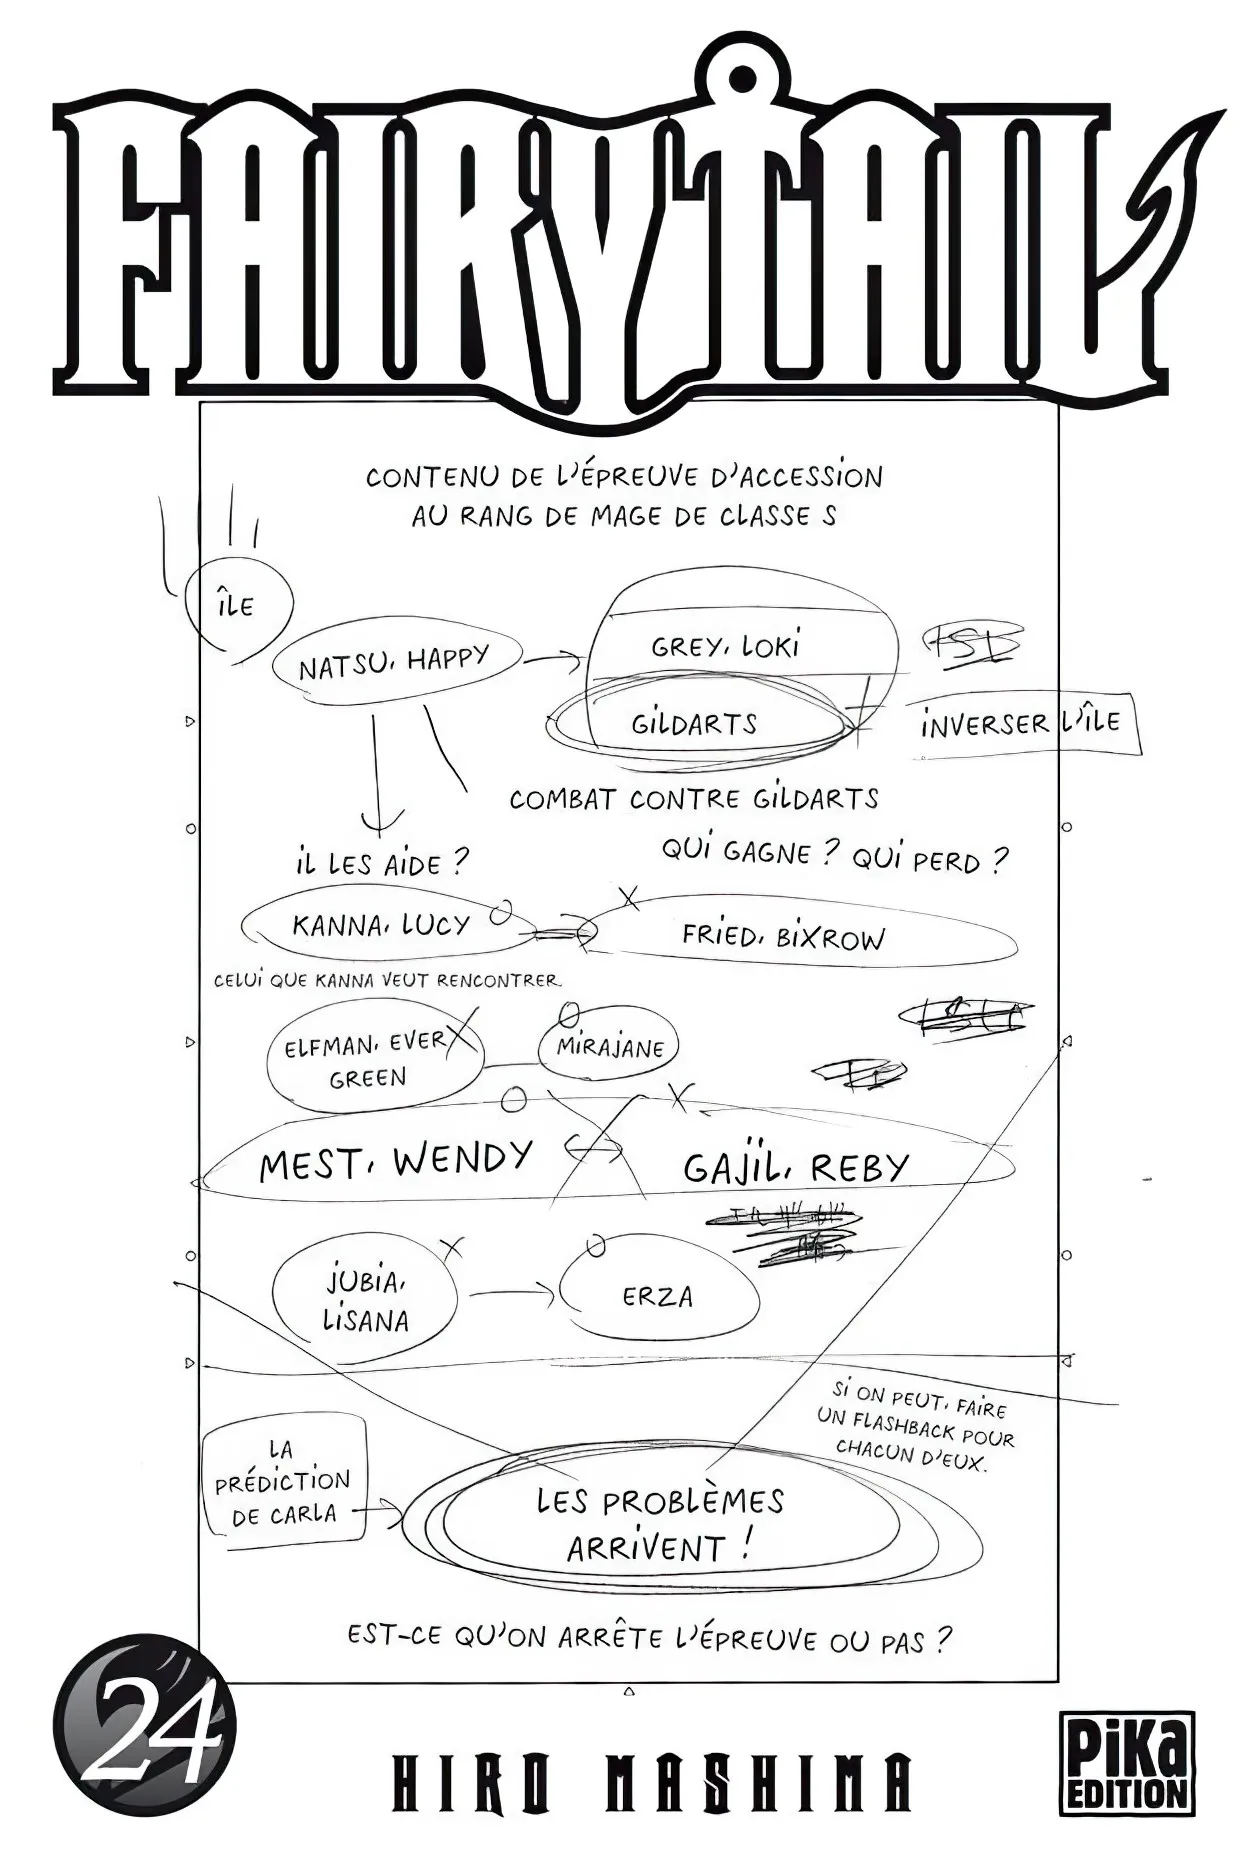 FAIRY TAIL
CONTENU DE L'ÉPREUVE D'ACCESSION
AU RANG DE MAGE DE CLASSE S
ÎLE
NATSU, HAPPY
GREY, LOKI
GILDARTS
INVERSER L'ÎLE
COMBAT CONTRE GILDARTS
QUI GAGNE ? QUI PERD ?
IL LES AIDE ?
KANNA, LUCY
FRIED, BIXROW
CELUI QUE KANNA VEUT RENCONTRER
ELFMAN, EVER
GREEN
MIRAJANE
MEST, WENDY
GAJIL, REBY
JUBIA,
LISANA
ERZA
SI ON PEUT, FAIRE
UN FLASHBACK POUR
CHACUN D'EUX.
LA
PRÉDICTION
DE CARLA
LES PROBLÈMES
ARRIVENT !
EST-CE QU'ON ARRÊTE L'ÉPREUVE OU PAS ?
24
HIRO MASHIMA
PIKA
EDITION